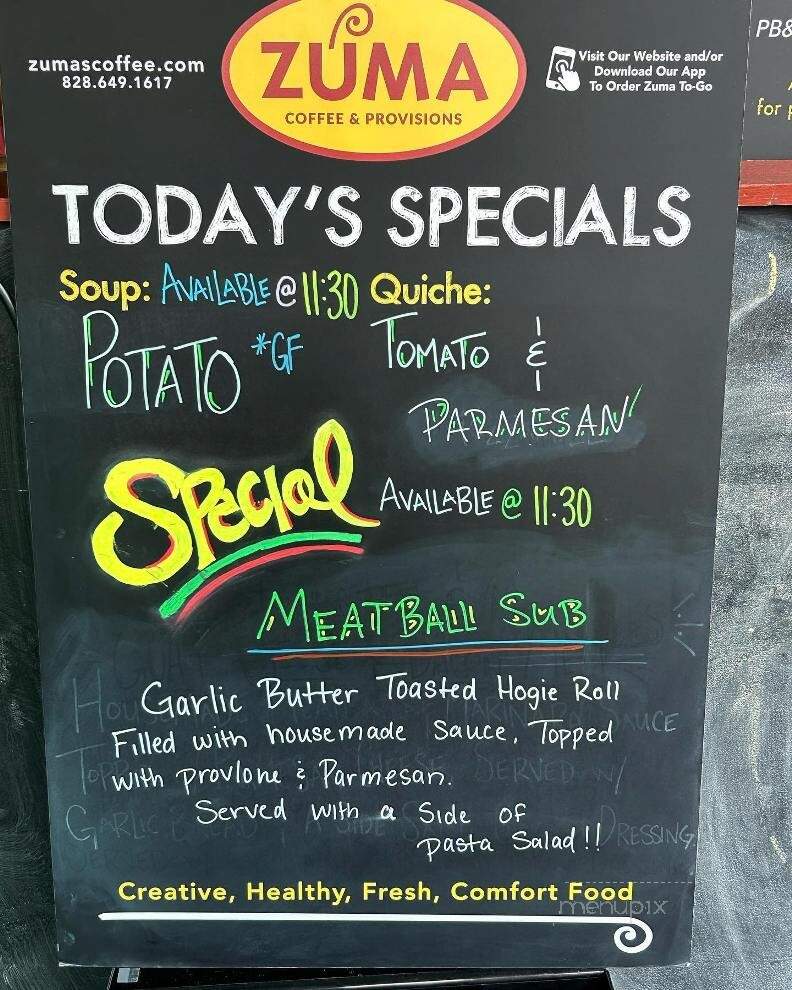 zumascoffee.com
828.649.1617
ZUMA
COFFEE & PROVISIONS
Visit Our Website and/or
Download Our App
To Order Zuma To-Go
PB&
for
TODAY'S SPECIALS
Soup: AVAILABLE @ 11:30
POTATO *GF
Quiche:
TOMATO &
PARMESAN
Special AVAILABLE @ 11:30
MEATBALL SUB
Garlic Butter Toasted Hogie Roll
Filled with housemade Sauce, Topped
with provlone & Parmesan.
Served with a Side of
pasta Salad!!
SAUCE
SERVED W/
GARLIC
DRESSING
Creative, Healthy, Fresh, Comfort Food
menupix